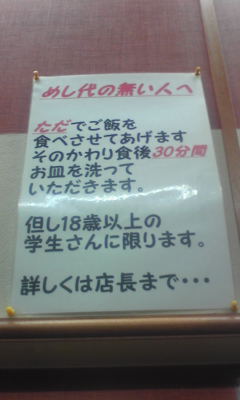 めし代の無い人へ
ただでご飯を
食べさせてあげます
そのかわり食後30分間
お皿を洗って
いただきます。
但し18歳以上の
学生さんに限ります。
詳しくは店長まで・・・